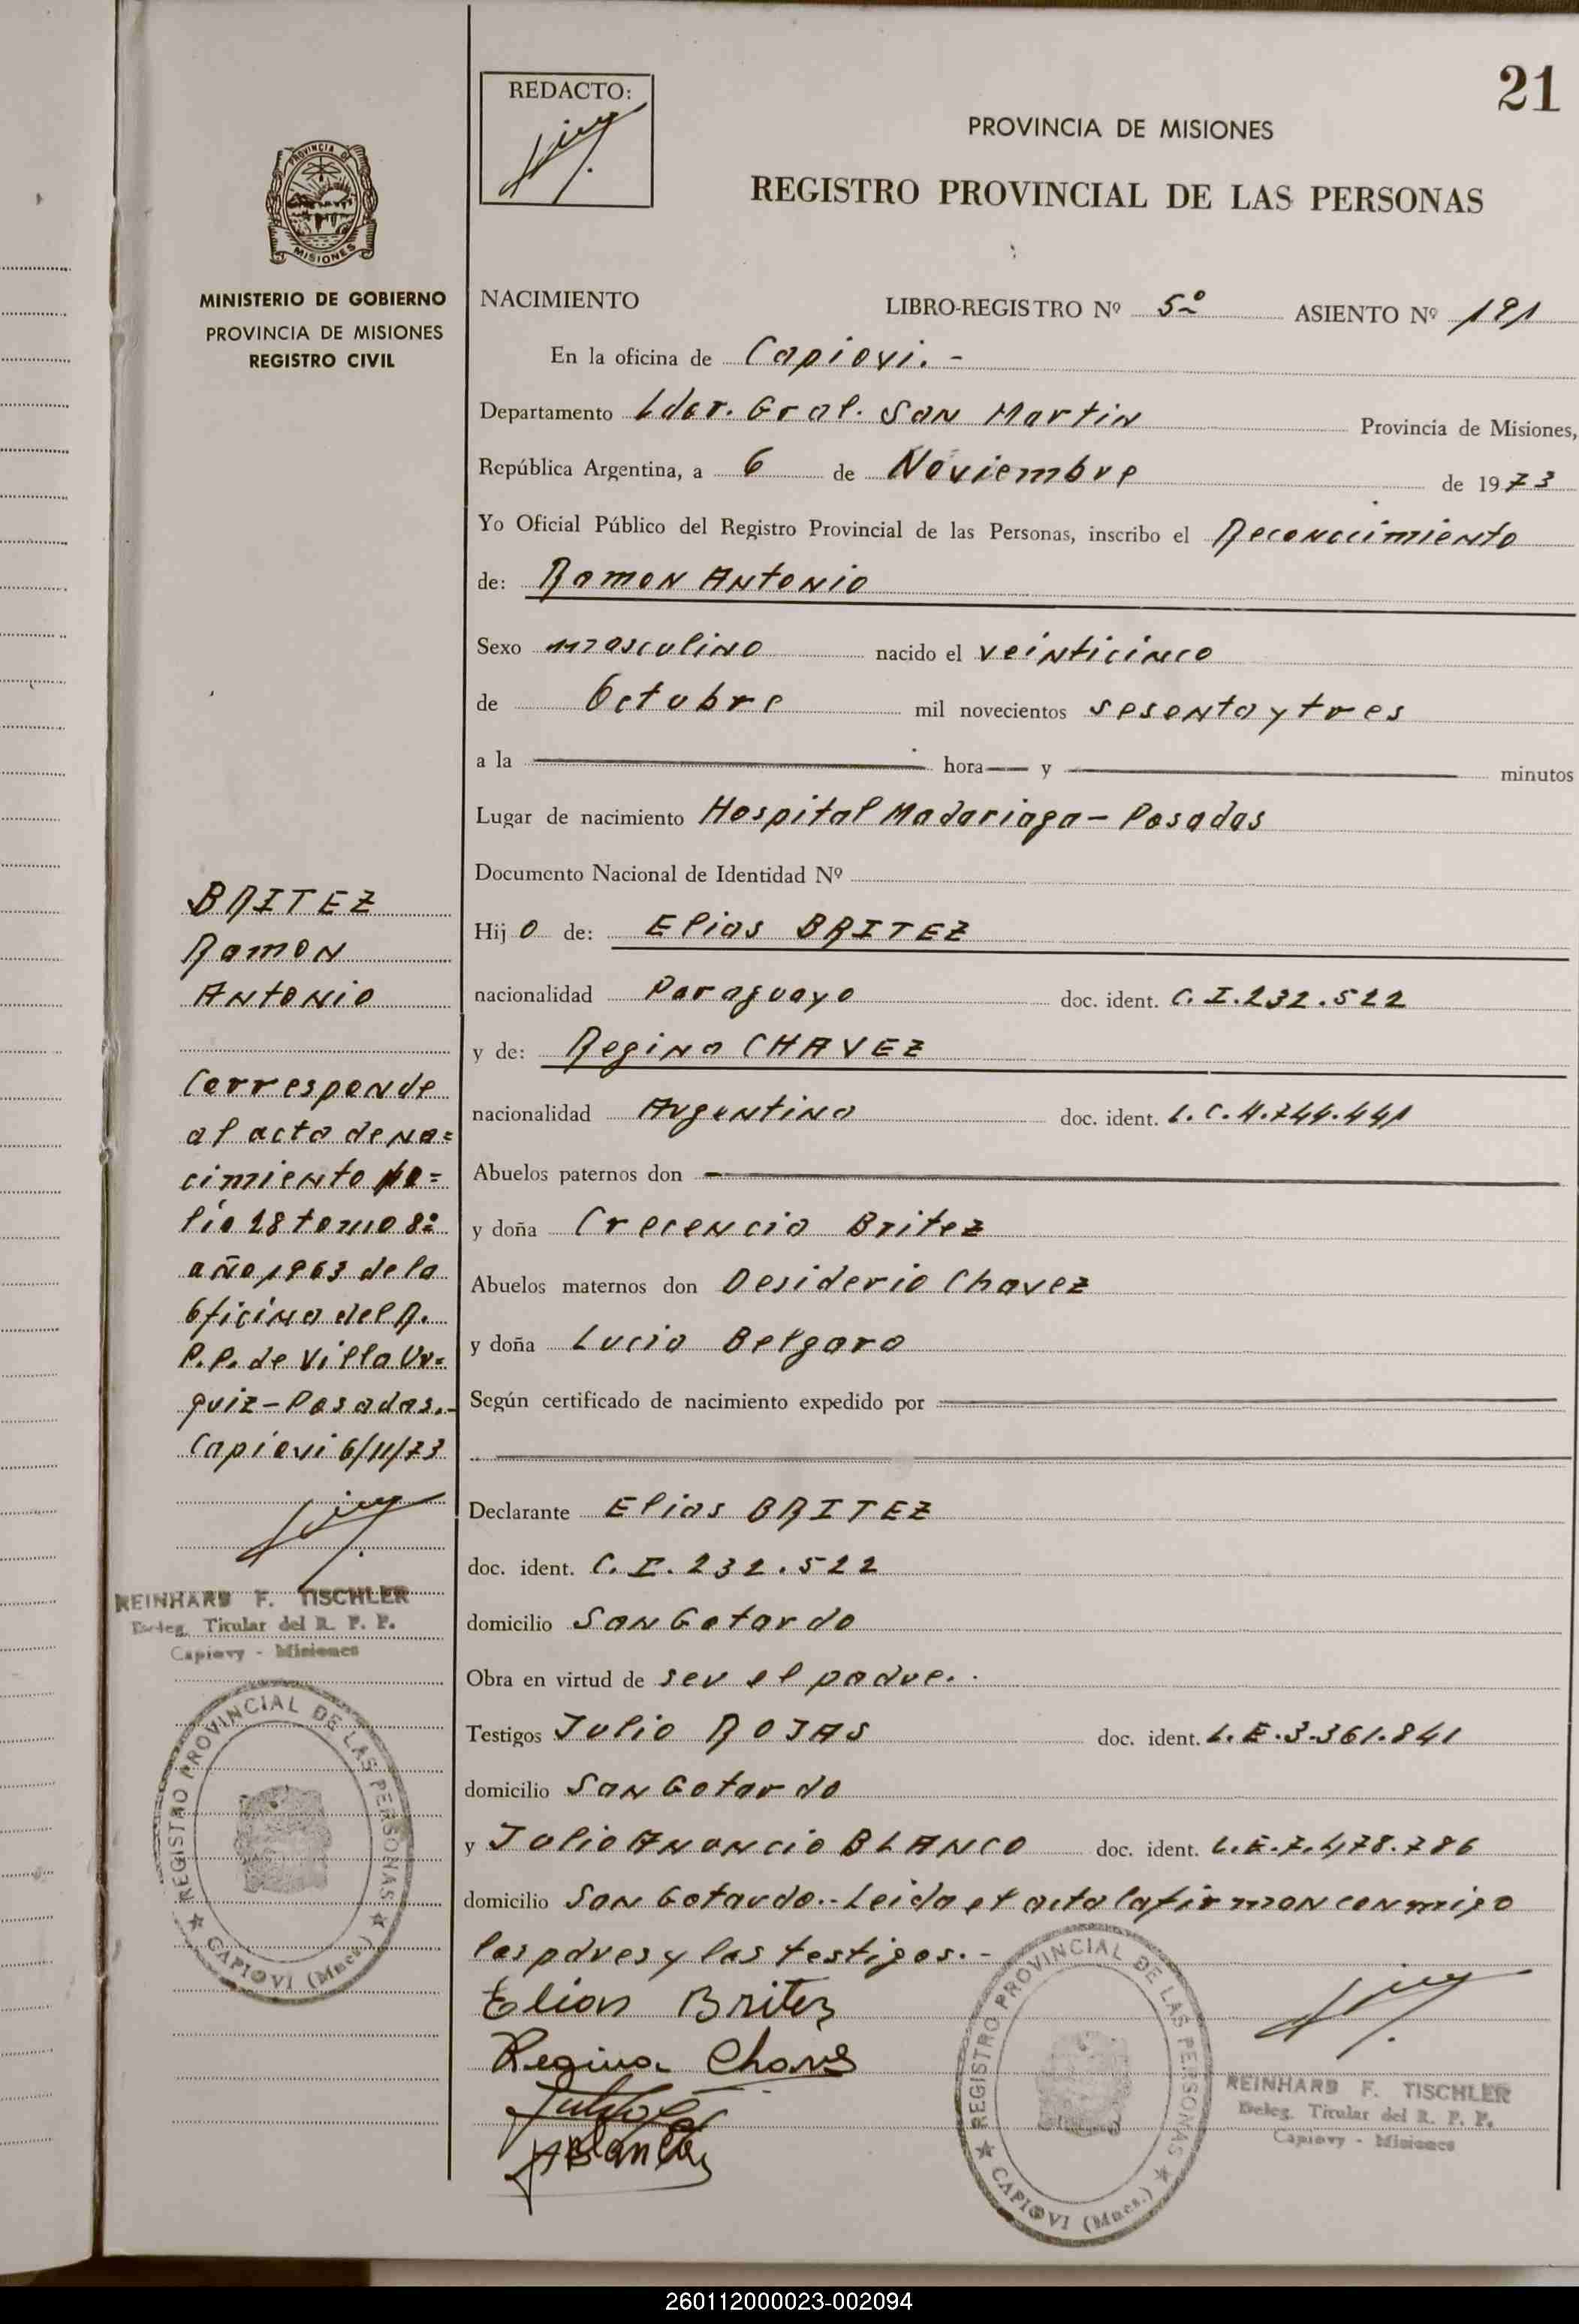 21
REDACTO:
PROVINCIA DE MISIONES
REGISTRO PROVINCIAL DE LAS PERSONAS
PROVINCIA DE
MISIONES
MINISTERIO DE GOBIERNO
PROVINCIA DE MISIONES
REGISTRO CIVIL
NACIMIENTO LIBRO-REGISTRO Nº 5º ASIENTO Nº 191
En la oficina de Capiovi.-
Departamento Lder. Gral. San Martin Provincia de Misiones,
República Argentina, a 6 de Noviembre de 1973
Yo Oficial Público del Registro Provincial de las Personas, inscribo el Reconocimiento
de: Ramon Antonio
Sexo masculino nacido el veinticinco
de Octubre mil novecientos sesenta y tres
a la hora y minutos
Lugar de nacimiento Hospital Madariaga - Posadas
Documento Nacional de Identidad Nº
Hijo de: Elias BRITEZ
nacionalidad Paraguaya doc. ident. C.I.232.522
y de: Regina CHAVEZ
nacionalidad Argentina doc. ident. L.C.4.744.441
Abuelos paternos don
y doña Crecencia Britez
Abuelos maternos don Desiderio Chavez
y doña Lucia Belgara
Según certificado de nacimiento expedido por
Declarante Elias BRITEZ
doc. ident. C.I.232.522
domicilio San Gotardo
Obra en virtud de ser el padre.
Testigos Julio ROJAS doc. ident. L.E.3.361.841
domicilio San Gotardo
y Julio Anuncio BLANCO doc. ident. L.E.7.478.786
domicilio San Gotardo.- Leida el acta la firman conmigo
los pdres y los testigos.-
Elias Britez
Regina Chavez
JABlanco
BRITEZ
Ramon
Antonio
Corresponde
al acta de na=
cimiento fo=
lio 28 tomo 8º
año 1963 de la
Oficina del R.
P.P. de Villa Ur=
quiz - Posadas.-
Capiovi 6/11/73
REINHARD F. TISCHLER
Deleg. Titular del R. P. P.
Capiovy - Misiones
REGISTRO PROVINCIAL DE LAS PERSONAS
CAPIOVI (Mnes.)
REGISTRO PROVINCIAL DE LAS PERSONAS
CAPIOVI (Mnes.)
REINHARD F. TISCHLER
Deleg. Titular del R. P. P.
Capiovy - Misiones
260112000023-002094